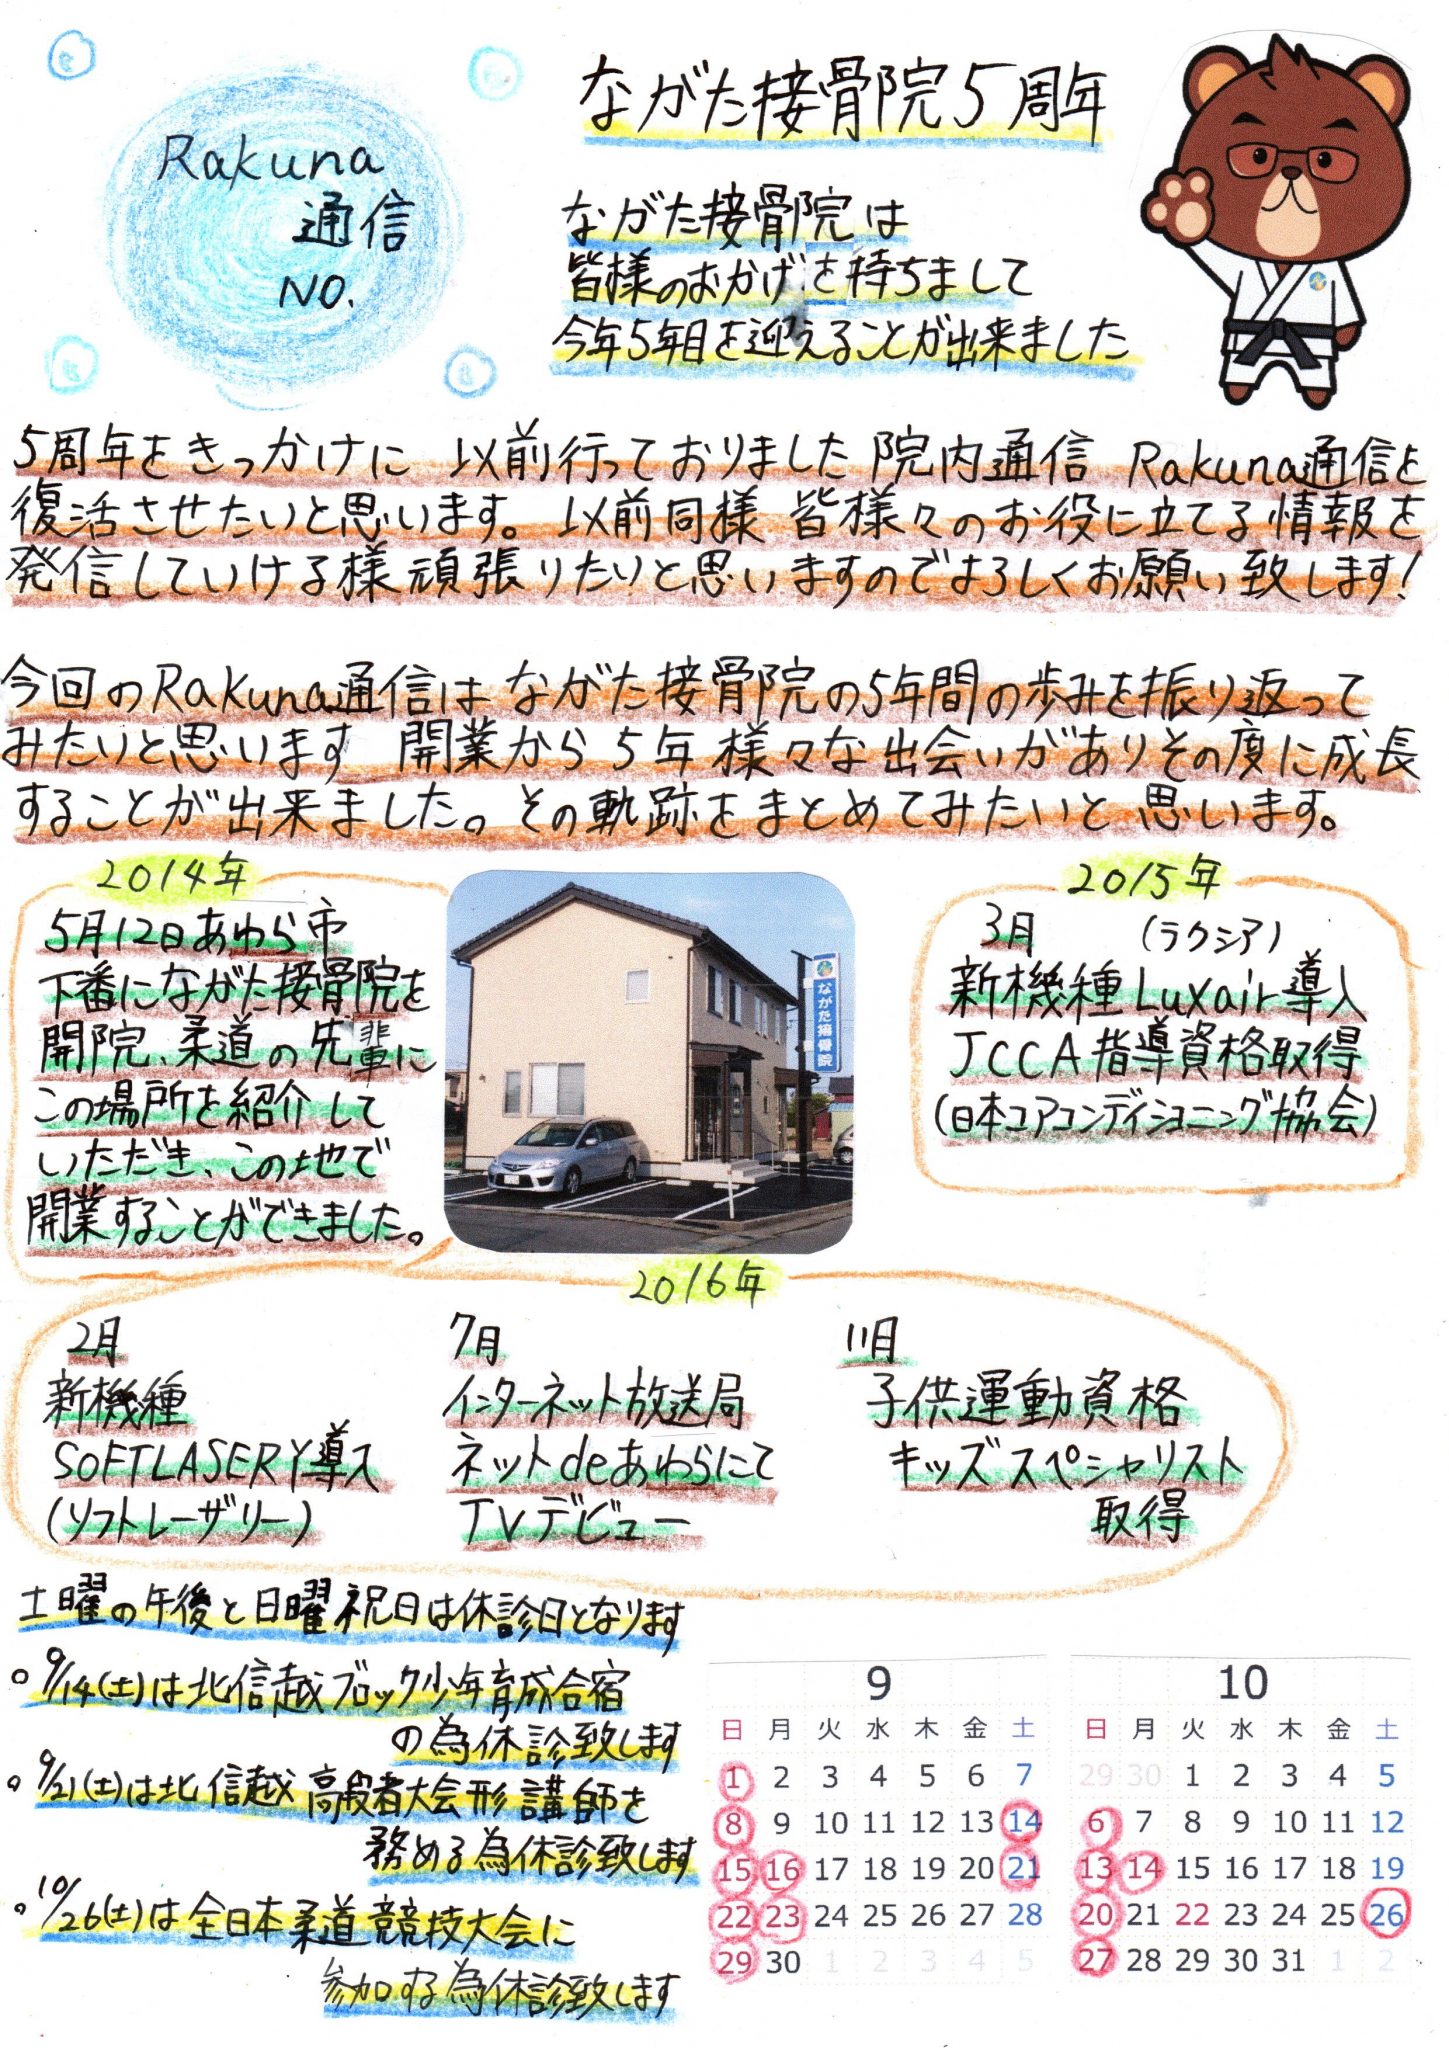 Rakuna
通信
NO.
ながた接骨院5周年
ながた接骨院は
皆様のおかげを持ちまして
今年5年目を迎えることが出来ました
5周年をきっかけに 以前行っておりました 院内通信 Rakuna通信を
復活させたいと思います。以前同様 皆様々のお役に立てる情報を
発信していける様頑張りたいと思いますのでよろしくお願い致します!
今回のRakuna通信は ながた接骨院の5年間の歩みを振り返って
みたいと思います 開業から5年 様々な出会いがありその度に成長
することが出来ました。その軌跡をまとめてみたいと思います。
2014年
5月12日あわら市
下番にながた接骨院を
開院、柔道の先輩に
この場所を紹介して
いただき、この地で
開業することができました。
ながた接骨院
2015年
3月 (ラクシア)
新機種Luxair導入
JCCA指導資格取得
(日本コアコンディショニング協会)
2016年
2月
新機種
SOFTLASERY導入
(ソフトレーザリー)
7月
インターネット放送局
ネットdeあわらにて
TVデビュー
11月
子供運動資格
キッズスペシャリスト
取得
土曜の午後と日曜祝日は休診日となります
。9/14(土)は北信越ブロック少年育成合宿
の為休診致します
。9/21(土)は北信越高段者大会形講師を
務める為休診致します
。10/26(土)は全日本柔道競技大会に
参加する為休診致します
9
日 月 火 水 木 金 土
1 2 3 4 5 6 7
8 9 10 11 12 13 14
15 16 17 18 19 20 21
22 23 24 25 26 27 28
29 30 1 2 3 4 5
10
日 月 火 水 木 金 土
29 30 1 2 3 4 5
6 7 8 9 10 11 12
13 14 15 16 17 18 19
20 21 22 23 24 25 26
27 28 29 30 31 1 2